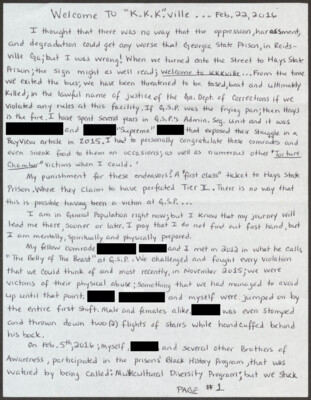 Welcome To "K.K.K."ville... Feb, 22, 2016
I thought that there was no way that the oppression, harassment,
and degradation could get any worse that Georgia State Prison, in Reids-
ville Ga; but I was wrong! When we turned onto the Street to Hays State
Prison; the sign might as well read; Welcome to KKKville... From the time
we exited the bus; we have been threatened to be tased, beat and ultimately
Killed; in the lawful name of justice of the Ga. Dept. of Corrections if we
violated any rules at this facility. If G.S.P. was the frying pan; then Hays
is the fire. I have spent several years in G.S.P.'s Admin. Seg. Unit and it was
and "Supreme" that exposed their struggle in a
BayView article in 2015. I had to personally congratulate these comrades and
even sneak food to them on occasions; as well as numerous other "Torture
Chamber" victims when I could.
My punishment for these endeavors? A "first class" ticket to Hays State
Prison, Where they claim to have perfected Tier II. There is no way that
this is possible having been a victim at G.S.P....
I am in General Population right now; but I know that my journey will
lead me there, sooner or later. I pray that I do not find out fast hand, but
I am mentally, spiritually and physically prepared.
My fellow comrade and I met in 2012 in what he calls,
"The Belly Of The Beast" at G.S.P. We challenged and fought every violation
that we could think of and most recently, in November 2015; we were
victims of their physical abuse; something that we had managed to avoid
up until that point. and myself were jumped on by
the entire first shift. Male and females alike. was even stomped
and thrown down two (2) flights of stairs while handcuffed behind
his back.
On Feb. 5th, 2016; myself, and several other Brothers of
Awareness, participated in the prisons' Black History Program, that was
watered by being called: Multicultural Diversity Program; but we stuck
PAGE #1